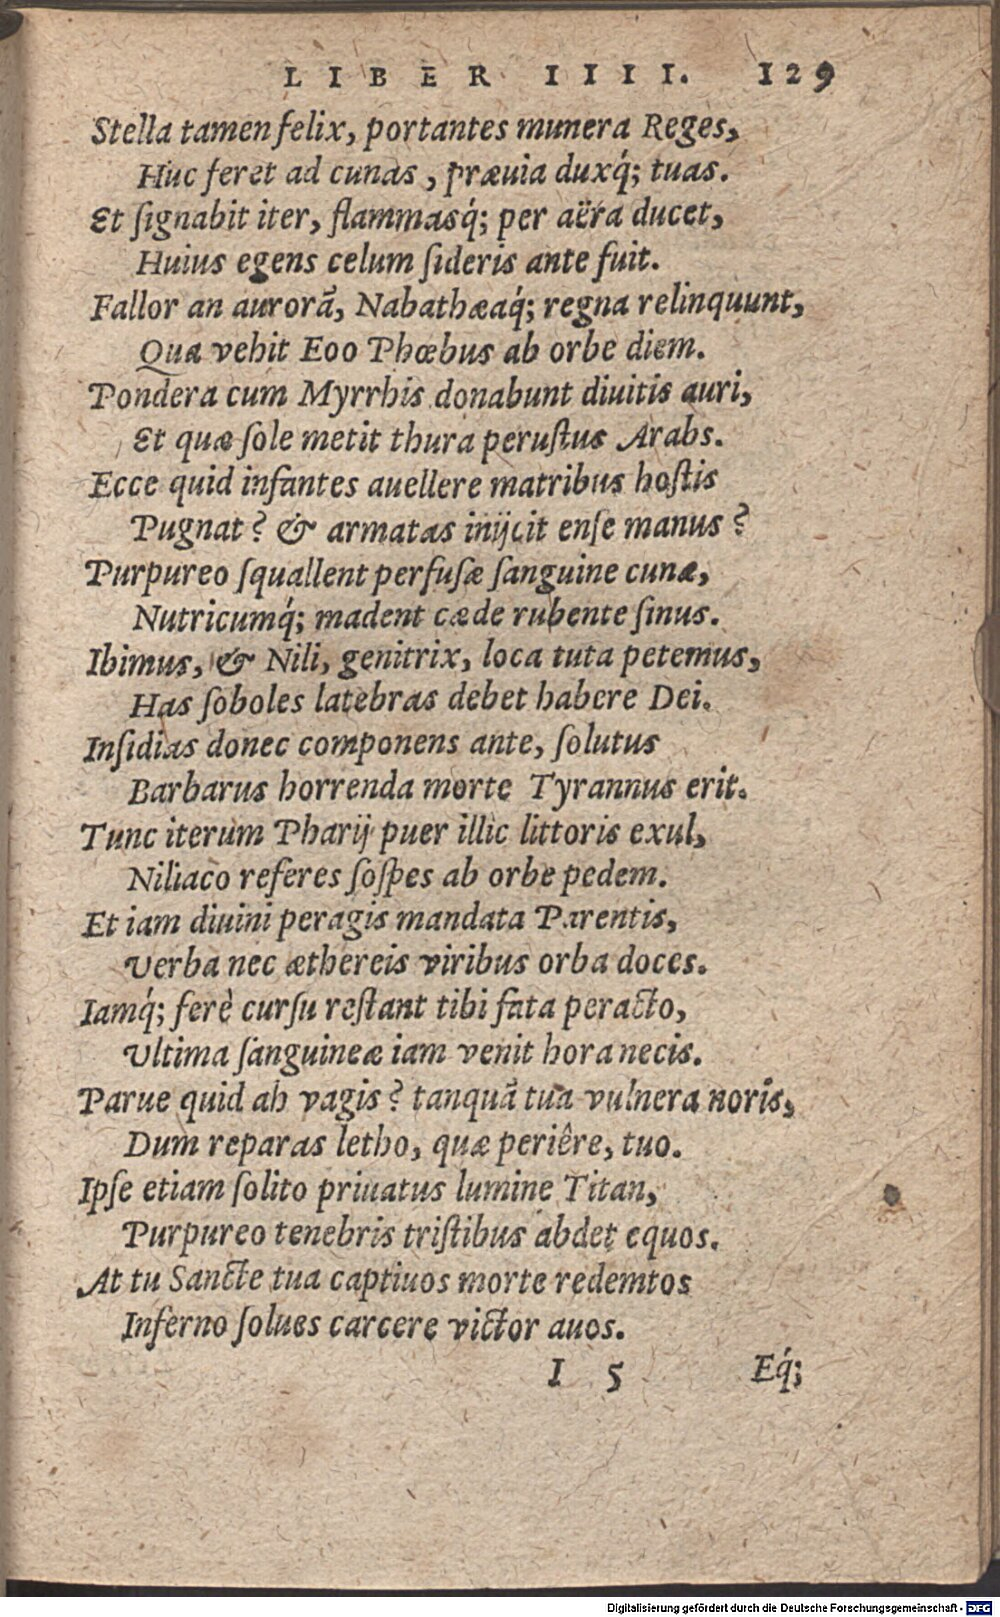 LIBER IIII. 129
Stella tamen felix, portantes munera Reges,
Huc feret ad cunas, præuia duxq́; tuas.
Et ſignabit iter, flammasq́; per aëra ducet,
Huius egens celum ſideris ante fuit.
Fallor an aurorã, Nabathæaq́; regna relinquunt,
Qua vehit Eoo Phœbus ab orbe diem.
Pondera cum Myrrhis donabunt diuitis auri,
Et quæ ſole metit thura peruſtus Arabs.
Ecce quid infantes auellere matribus hoſtis
Pugnat? & armatas inijcit enſe manus?
Purpureo ſquallent perfuſæ ſanguine cunæ,
Nutricumq́; madent cæde rubente ſinus.
Ibimus, & Nili, genitrix, loca tuta petemus,
Has ſoboles latebras debet habere Dei.
Inſidias donec componens ante, ſolutus
Barbarus horrenda morte Tyrannus erit.
Tunc iterum Pharij puer illic littoris exul,
Niliaco referes ſoſpes ab orbe pedem.
Et iam diuini peragis mandata Parentis,
Verba nec æthereis viribus orba doces.
Iamq́; ferè curſu reſtant tibi fata peracto,
Vltima ſanguineæ iam venit hora necis.
Parue quid ah vagis? tanquã tua vulnera noris,
Dum reparas letho, quæ periêre, tuo.
Ipſe etiam ſolito priuatus lumine Titan,
Purpureo tenebris triſtibus abdet equos.
At tu Sancte tua captiuos morte redemtos
Inferno ſolues carcere victor auos.
I 5 Eq́;
Digitalisierung gefördert durch die Deutsche Forschungsgemeinschaft - DFG